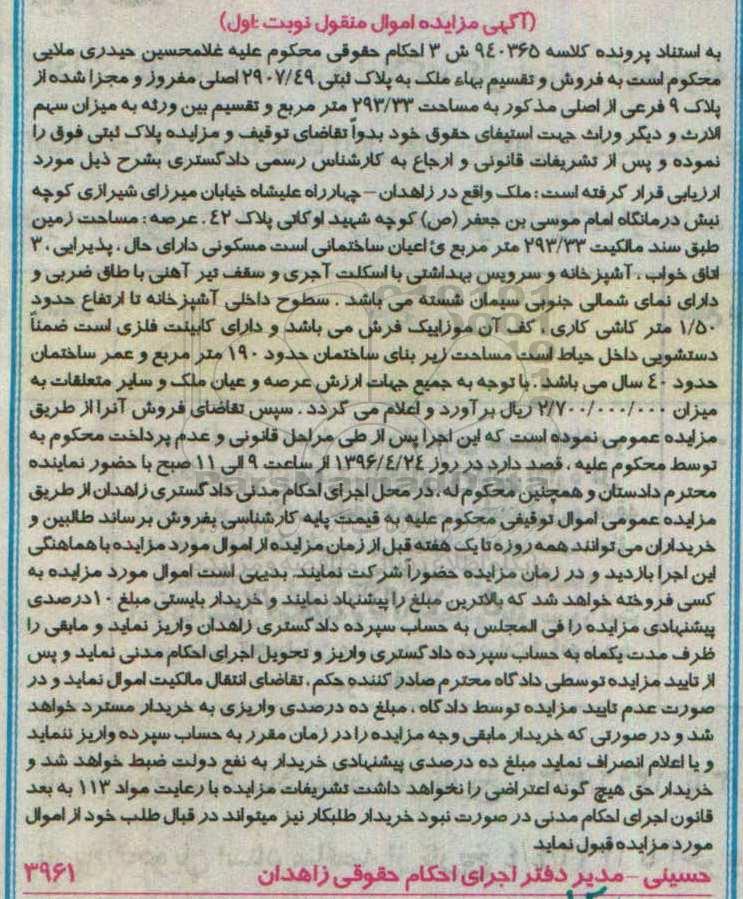 (آگهی مزایده اموال منقول نوبت :اول)
به استناد پرونده کلاسه ۹۴۰۳۶۵ ش ۳ احکام حقوقی محکوم علیه غلامحسین حیدری ملایی
محکوم است به فروش و تقسیم بهاء ملک به پلاک ثبتی ۲۹۰۷/۴۹ اصلی مفروز و مجزا شده از
پلاک ۹ فرعی از اصلی مذکور به مساحت ۲۹۳/۳۳ متر مربع و تقسیم بین ورثه به میزان سهم
الارث و دیگر وراث جهت استیفای حقوق خود بدواً تقاضای توقیف و مزایده پلاک ثبتی فوق را
نموده و پس از تشریفات قانونی و ارجاع به کارشناس رسمی دادگستری بشرح ذیل مورد
ارزیابی قرار گرفته است : ملک واقع در زاهدان – چهارراه علیشاه خیابان میرزای شیرازی کوچه
نبش درمانگاه امام موسی بن جعفر (ص) کوچه شهید اوکاتی پلاک ۴۲ . عرصه : مساحت زمین
طبق سند مالکیت ۲۹۳/۳۳ متر مربع ئ اعیان ساختمانی است مسکونی دارای حال ، پذیرایی ، ۳
اتاق خواب ، آشپزخانه و سرویس بهداشتی با اسکلت آجری و سقف تیر آهنی با طاق ضربی و
دارای نمای شمالی جنوبی سیمان شسته می باشد . سطوح داخلی آشپزخانه تا ارتفاع حدود
۱/۵۰ متر کاشی کاری ، کف آن موزاییک فرش می باشد و دارای کابینت فلزی است ضمناً
دستشویی داخل حیاط است مساحت زیر بنای ساختمان حدود ۱۹۰ متر مربع و عمر ساختمان
حدود ۴۰ سال می باشد . با توجه به جمیع جهات ارزش عرصه و عیان ملک و سایر متعلقات به
میزان ۲/۷۰۰/۰۰۰/۰۰۰ ریال برآورد و اعلام می گردد . سپس تقاضای فروش آنرا از طریق
مزایده عمومی نموده است که این اجرا پس از طی مراحل قانونی و عدم پرداخت محکوم به
توسط محکوم علیه ، قصد دارد در روز ۱۳۹۶/۴/۲۴ از ساعت ۹ الی ۱۱ صبح با حضور نماینده
محترم دادستان و همچنین محکوم له ، در محل اجرای احکام مدنی دادگستری زاهدان از طریق
مزایده عمومی اموال توقیفی محکوم علیه به قیمت پایه کارشناسی بفروش برساند طالبین و
خریداران می توانند همه روزه تا یک هفته قبل از زمان مزایده از اموال مورد مزایده با هماهنگی
این اجرا بازدید و در زمان مزایده حضورا شرکت نمایند. بدیهی است اموال مورد مزایده به
کسی فروخته خواهد شد که بالاترین مبلغ را پیشنهاد نمایند و خریدار بایستی مبلغ ۱۰درصدی
پیشنهادی مزایده را فی المجلس به حساب سپرده دادگستری زاهدان واریز نماید و مابقی را
ظرف مدت یکماه به حساب سپرده دادگستری واریز و تحویل اجرای احکام مدنی نماید و پس
از تایید مزایده توسطی دادگاه محترم صادر کننده حکم ، تقاضای انتقال مالکیت اموال نماید و در
صورت عدم تایید مزایده توسط دادگاه ، مبلغ ده درصدی واریزی به خریدار مسترد خواهد
شد و در صورتی که خریدار مابقی وجه مزایده را در زمان مقرر به حساب سپرده واریز ننماید
و یا اعلام انصراف نماید مبلغ ده درصدی پیشنهادی خریدار به نفع دولت ضبط خواهد شد و
خریدار حق هیچ گونه اعتراضی را نخواهد داشت تشریفات مزایده با رعایت مواد ۱۱۳ به بعد
قانون اجرای احکام مدنی در صورت نبود خریدار طلبکار نیز میتواند در قبال طلب خود از اموال
مورد مزایده قبول نماید
حسینی – مدیر دفتر اجرای احکام حقوقی زاهدان ۳۹۶۱